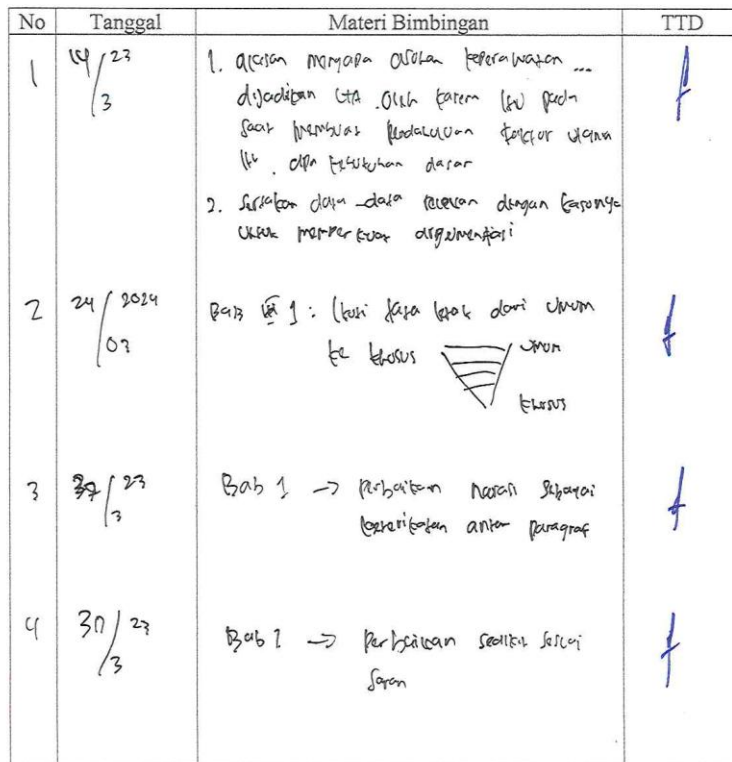 No Tanggal Materi Bimbingan TTD
1 14/23 1. alasan mengapa asuhan keperawatan ...
3 dijadikan KTA. Oleh karena itu pada
saat membuat pendahuluan faktor utama
itu. dan kebutuhan dasar
2. Sertakan data-data relevan dengan kasusnya
untuk memperkuat argumentasi
2 24/2024 Bab 1: Ikuti tata letak dari umum
03 ke khusus umum
khusus
3 23 Bab 1 -> perbaikan narasi sebagai
3 keterikatan antar paragraf
4 30/23 Bab 1 -> perbaikan sedikit sesuai
3 saran